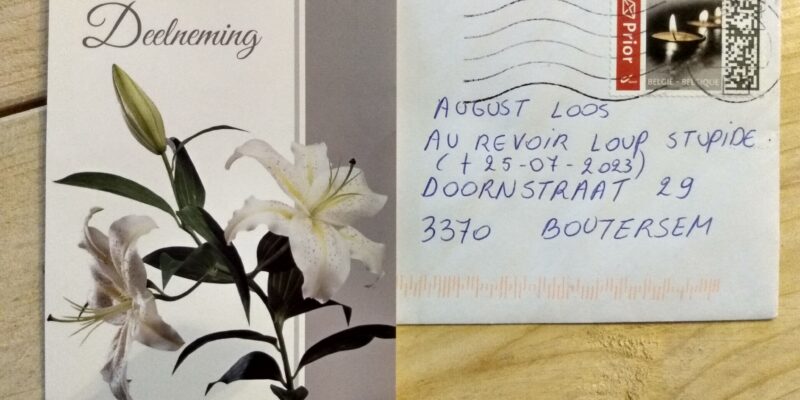 Deelneming
Prior
BELGIË - BELGIQUE
AUGUST LOOS
AU REVOIR LOUP STUPIDE
( † 25-07-2023)
DOORNSTRAAT 29
3370 BOUTERSEM